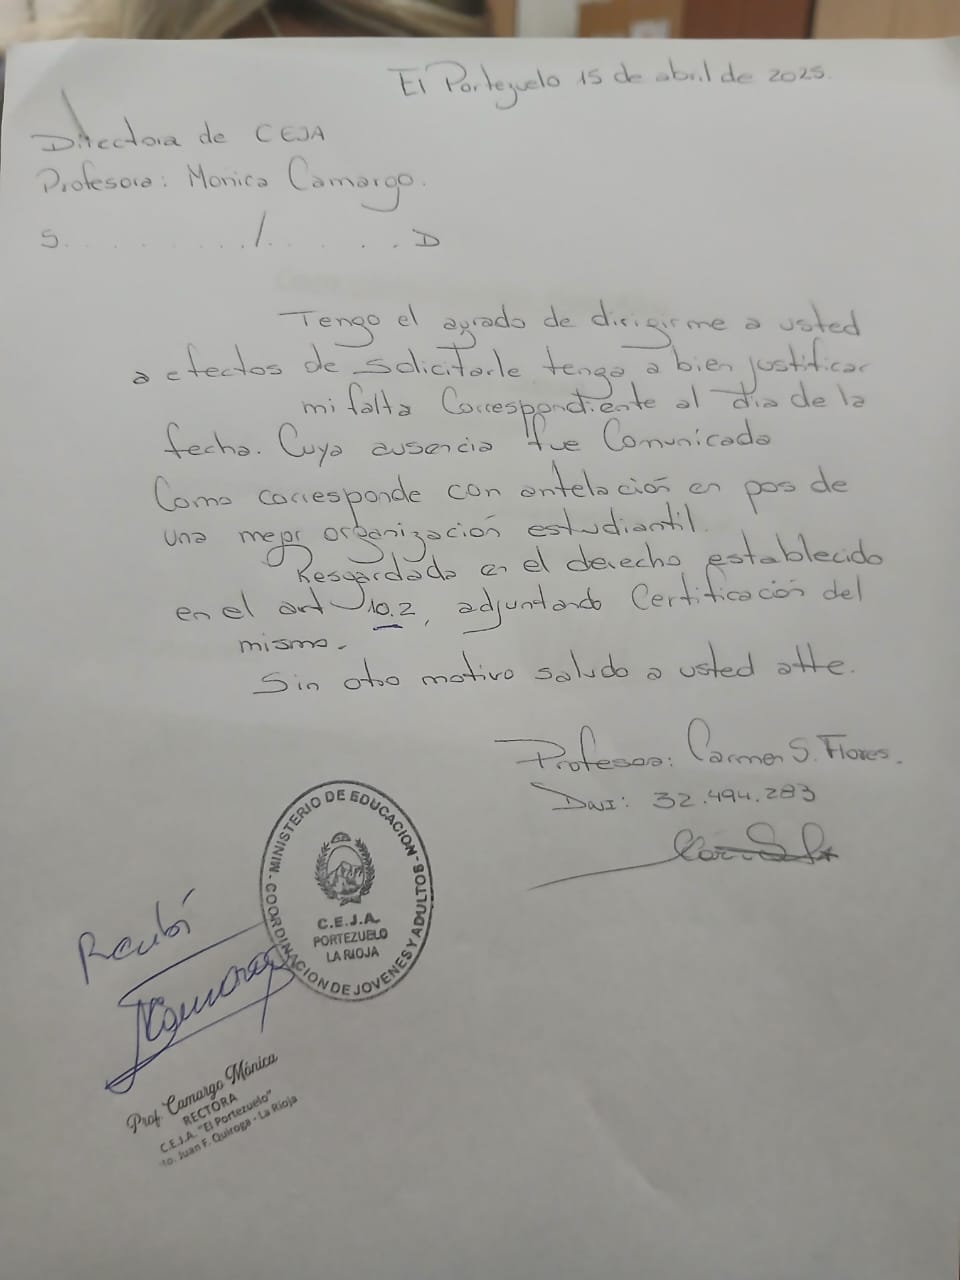 El Portezuelo 15 de abril de 2025.
Directora de CEJA
Profesora: Monica Camargo.
S. . . . . . . . /. . . . . . D
Tengo el agrado de dirigirme a usted
a efectos de solicitarle tenga a bien justificar
mi falta Correspondiente al día de la
fecha. Cuya ausencia fue Comunicada
Como corresponde con antelación en pos de
una mejor organización estudiantil.
Resgardada en el derecho establecido
en el art 10.2, adjuntando Certificación del
mismo.
Sin otro motivo saludo a usted atte.
Profesora: Carmen S. Flores.
DNI: 32.494.283
MINISTERIO DE EDUCACION - COORDINACION DE JOVENES Y ADULTOS -
C.E.J.A.
PORTEZUELO
LA RIOJA
Recibí
Prof. Camargo Mónica
RECTORA
C.E.J.A. "El Portezuelo"
to. Juan F. Quiroga - La Rioja